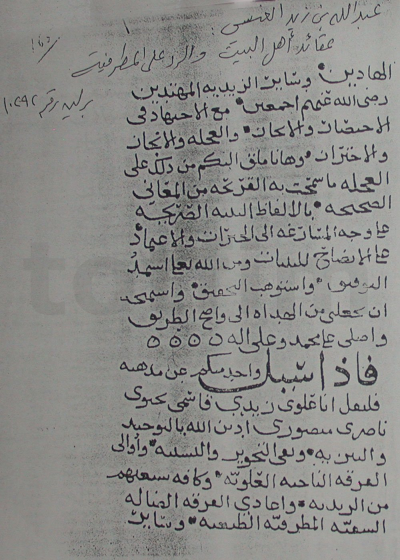 عبدالله بن زيد العنسي:
١
عقائد أهل البيت والرد على المطرفية
برلين رقم ١٠٢٩٢
الهادين وساير الزيديه المهتدين
رضى الله عنهم اجمعين مع الاجتهاد فى
والعجله والانجاز
وهانا ملق اليكم من ذلك على
العجله ما سمحت به القريحه من المعاني
الصحيحه بالالفاظ البينه الصريحه
على وجه المسارعه الى الخيرات والاعتماد
على الايضاح للبينات ومن الله تعالى استمد
التوفيق واستوهب التحقيق واستمحه
ان يجعلني من الهداه الى واضح الطريق
واصلى على محمد وعلى اله
فاذا سيل واحد منكم عن مذهبه
فليقل انا علوي زيدي قاسمي يحيوي
ناصرى منصوري ادين الله بالتوحيد
والتنزيه ونفي التجوير والتشبيه واوالى
الفرقه الناجيه العلويه وكافه شيعتهم
من الزيديه واعادي الفرقه الضاله
الشقيه المطرفيه الطبيعيه وساير